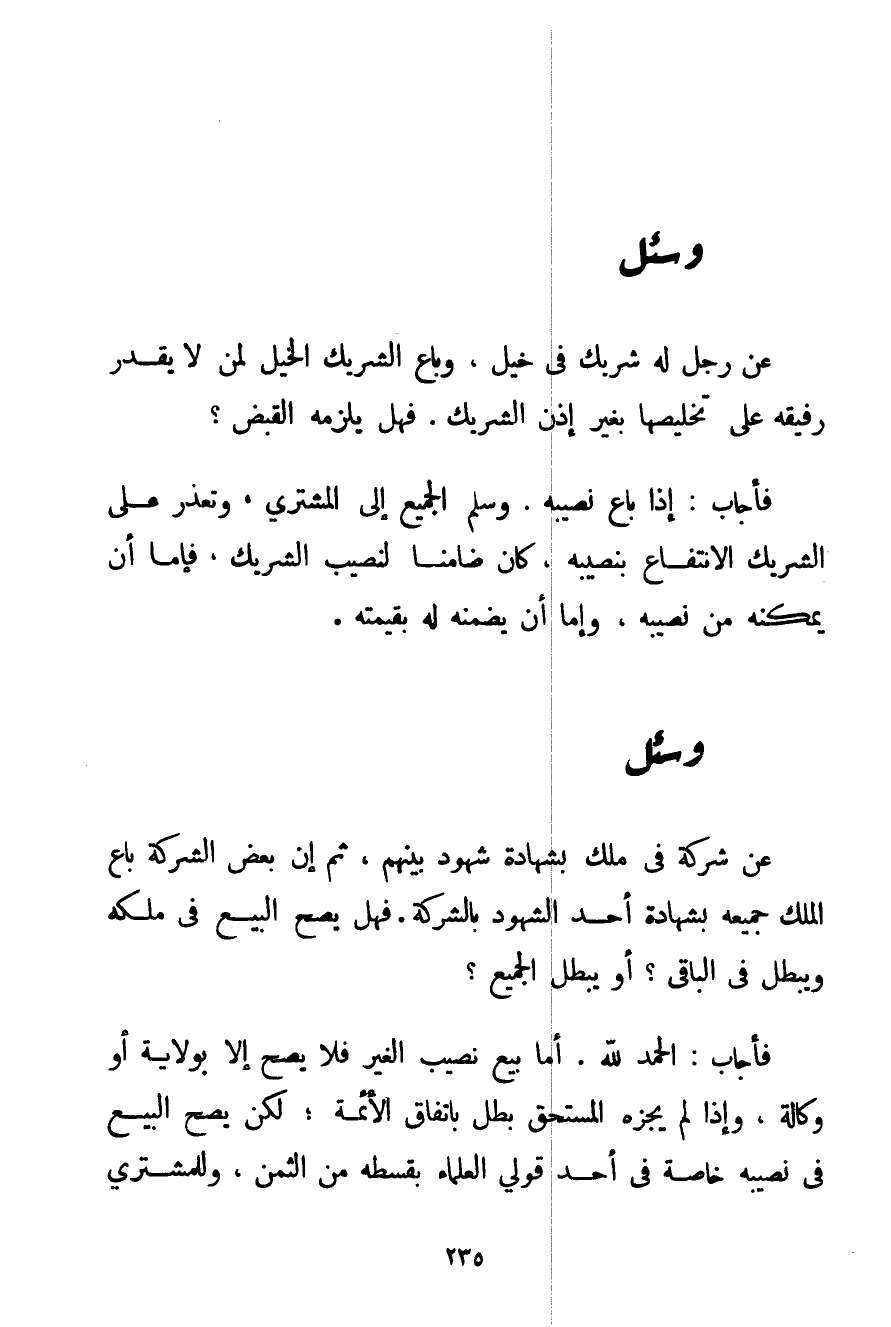 وسئل
عن رجل له شريك فى خيل ، وباع الشريك الخيل لمن لا يقدر
رفيقه على تخليصها بغير إذن الشريك . فهل يلزمه القبض ؟
فأجاب : إذا باع نصيبه . وسلم الجميع إلى المشتري ، وتعذر على
الشريك الانتفاع بنصيبه ، كان ضامنا لنصيب الشريك ، فإما أن
يمكنه من نصيبه ، وإما أن يضمنه له بقيمته .
وسئل
عن شركة فى ملك بشهادة شهود بينهم ، ثم إن بعض الشركة باع
الملك جميعه بشهادة أحد الشهود بالشركة . فهل يصح البيع فى ملكه
ويبطل فى الباقى ؟ أو يبطل الجميع ؟
فأجاب : الحمد لله . أما بيع نصيب الغير فلا يصح إلا بولاية أو
وكالة ، وإذا لم يجزه المستحق بطل باتفاق الأئمة ؛ لكن يصح البيع
فى نصيبه خاصة فى أحد قولي العلماء بقسطه من الثمن ، وللمشتري
٢٣٥